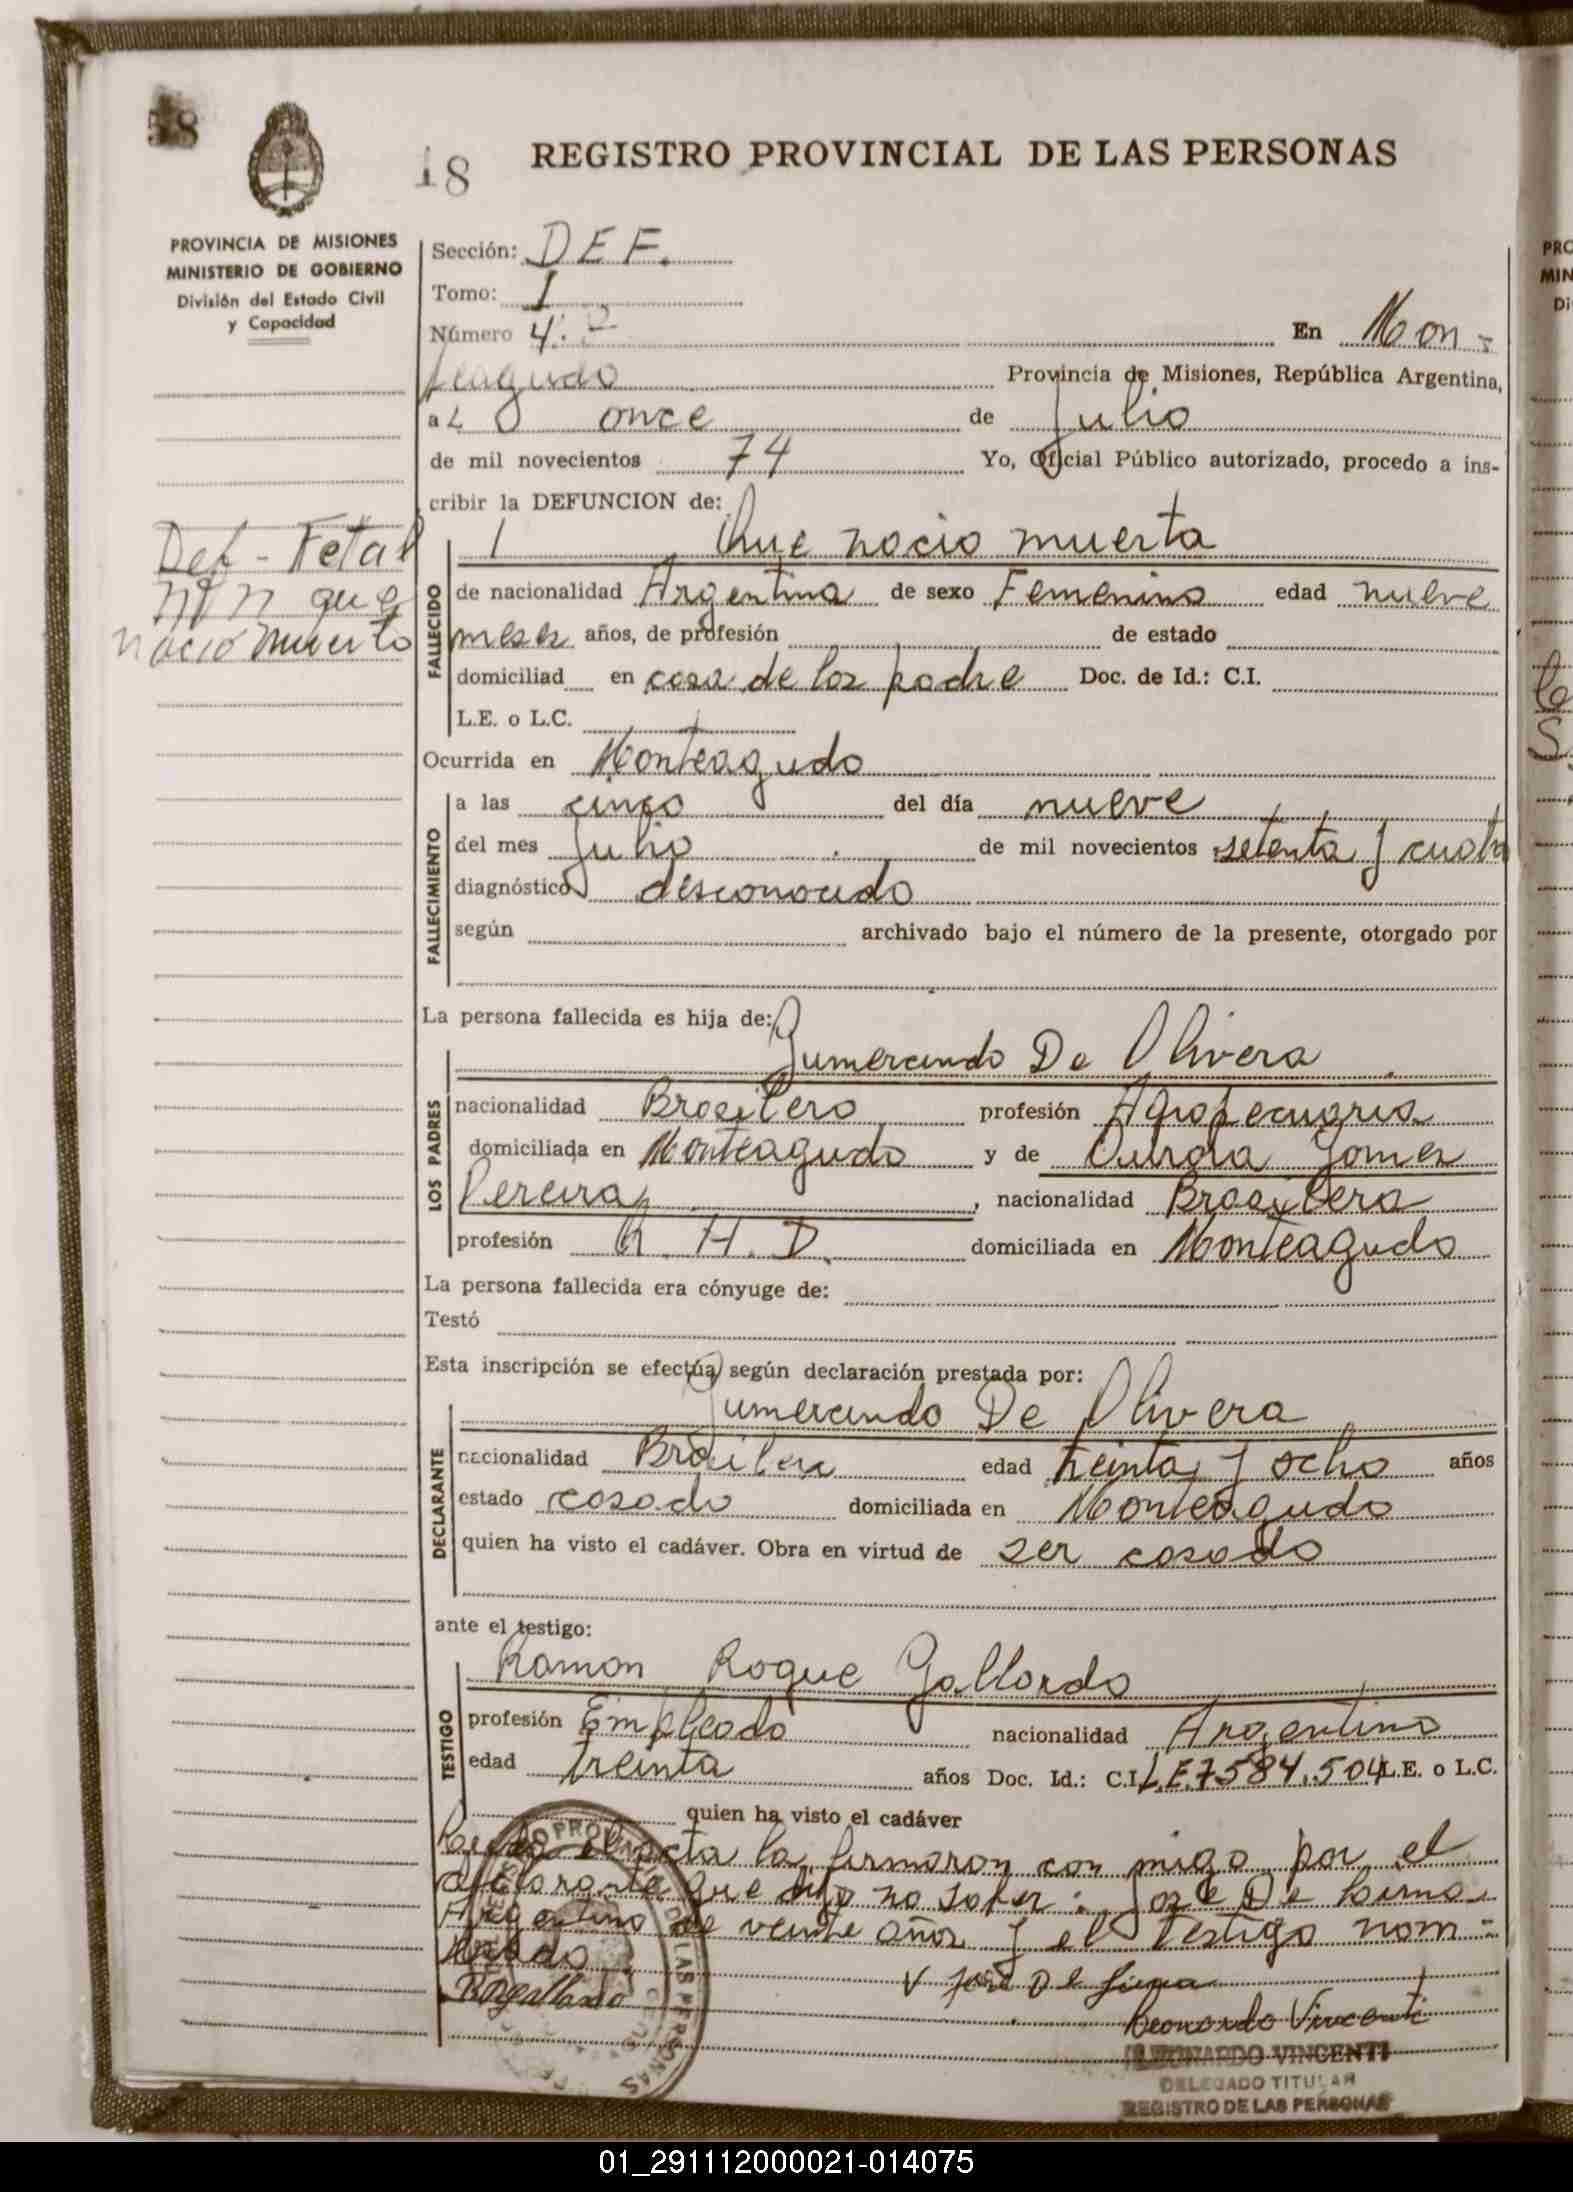 18
REGISTRO PROVINCIAL DE LAS PERSONAS
PROVINCIA DE MISIONES
MINISTERIO DE GOBIERNO
División del Estado Civil
y Capacidad
Sección: DEF.
Tomo: I
Número 4: En Mon-
teagudo Provincia de Misiones, República Argentina,
a L once de Julio
de mil novecientos 74 Yo, Oficial Público autorizado, procedo a ins-
cribir la DEFUNCION de:
Def - Fetal
NN que
nacio muerto
FALLECIDO
Que nacio muerta
de nacionalidad Argentina de sexo Femenino edad nueve
meses años, de profesión de estado
domiciliad en casa de los padre Doc. de Id.: C.I.
L.E. o L.C.
Ocurrida en Monteagudo
FALLECIMIENTO
a las cinco del día nueve
del mes Julio de mil novecientos setenta y cuatro
diagnóstico desconocido
según archivado bajo el número de la presente, otorgado por
La persona fallecida es hija de:
LOS PADRES
Gumercindo De Olivera
nacionalidad Brasilero profesión Agropecuaria
domiciliada en Monteagudo y de Gomez
Pereira, nacionalidad Brasilera
profesión Q. H. D. domiciliada en Monteagudo
La persona fallecida era cónyuge de:
Testó
Esta inscripción se efectúa según declaración prestada por:
DECLARANTE
Gumercindo De Olivera
nacionalidad Brasilera edad treinta y ocho años
estado casado domiciliada en Monteagudo
quien ha visto el cadáver. Obra en virtud de ser casado
ante el testigo:
TESTIGO
Ramon Roque Gallardo
profesión Empleado nacionalidad Argentino
edad treinta años Doc. Id.: C.I. L.E.7584.504 L.E. o L.C.
quien ha visto el cadáver
Leida el acta la firmaron con migo por el
declarante que dijo no saber: Jose De Lima
Argentino de veinte años y el testigo nom-
brado
RRGallardo
V Jose De Lima
Leonardo Vincenti
LEONARDO VINCENTI
DELEGADO TITULAR
REGISTRO DE LAS PERSONAS
01_291112000021-014075